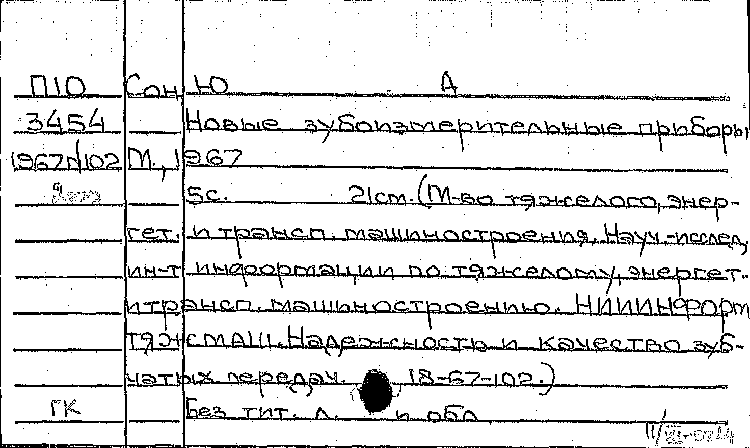 П10 Сон, Ю А
3454 Новые зубоизмерительные приборы
1967 102 М., 1967
5с. 21см. (М-во тяжелого, энер-
гет. и трансп. машиностроения. Науч.-исслед.
ин-т информации по тяжелому, энергет.
и трансп. машиностроению. НИИИнформ
тяжсмаш. Надежность и качество зуб-
чатых передач. 18-67-102.)
ГК Без тит. л. и обл